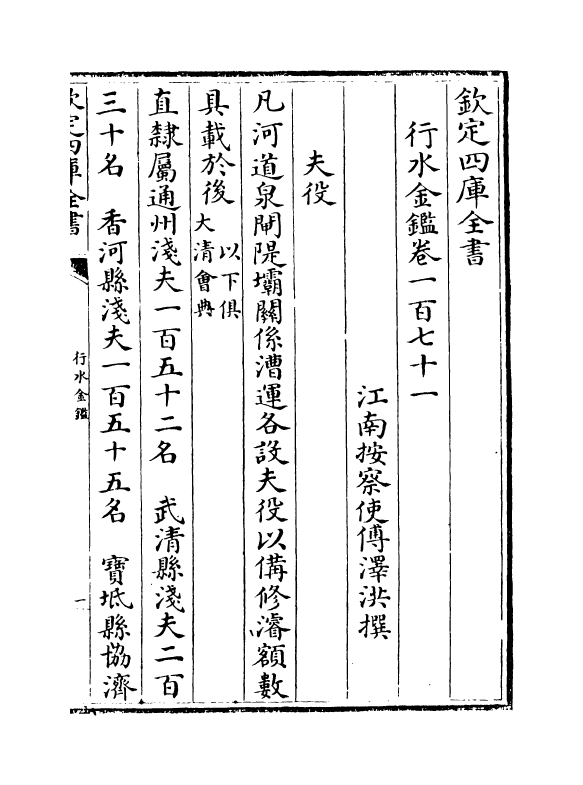 欽定四庫全書
行水金鑑卷一百七十一
江南按察使傅澤洪撰
夫役
凡河道泉閘隄壩關係漕運各設夫役以備修濬額數
具載於後以下俱大清會典
直隸屬通州淺夫一百五十二名　武清縣淺夫二百
三十名　香河縣淺夫一百五十五名　寶坻縣協濟
欽定四庫全書
行水金鑑
一